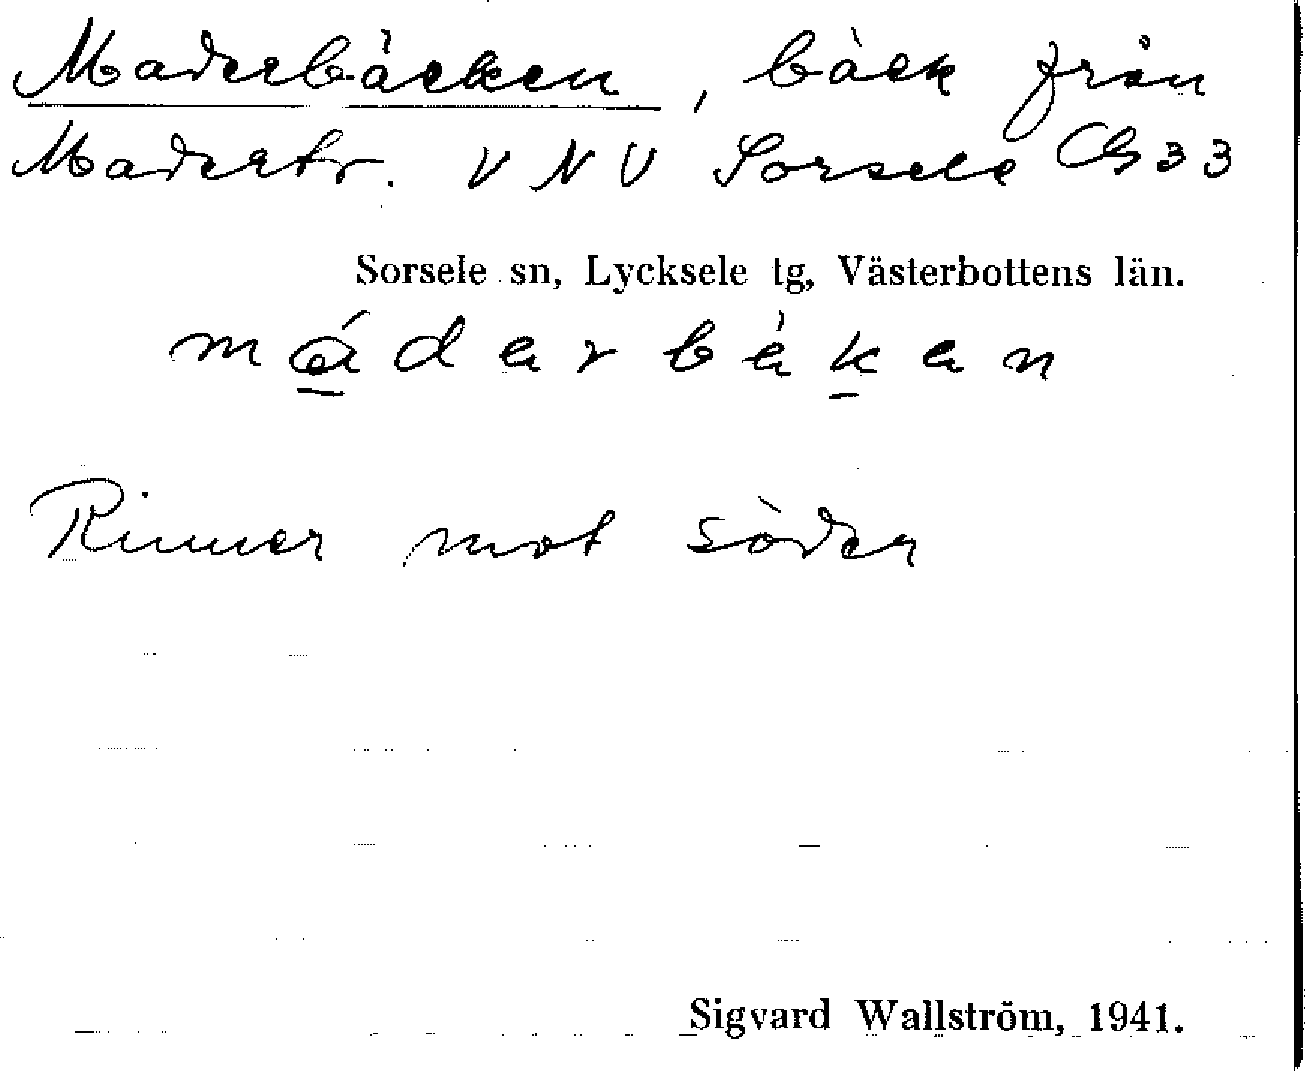 Maderbäcken, bäck från
Madertr. VNV Sorsele Gb33
Sorsele sn, Lycksele tg, Västerbottens län.
Rinner mot söder
Sigvard Wallström, 1941.